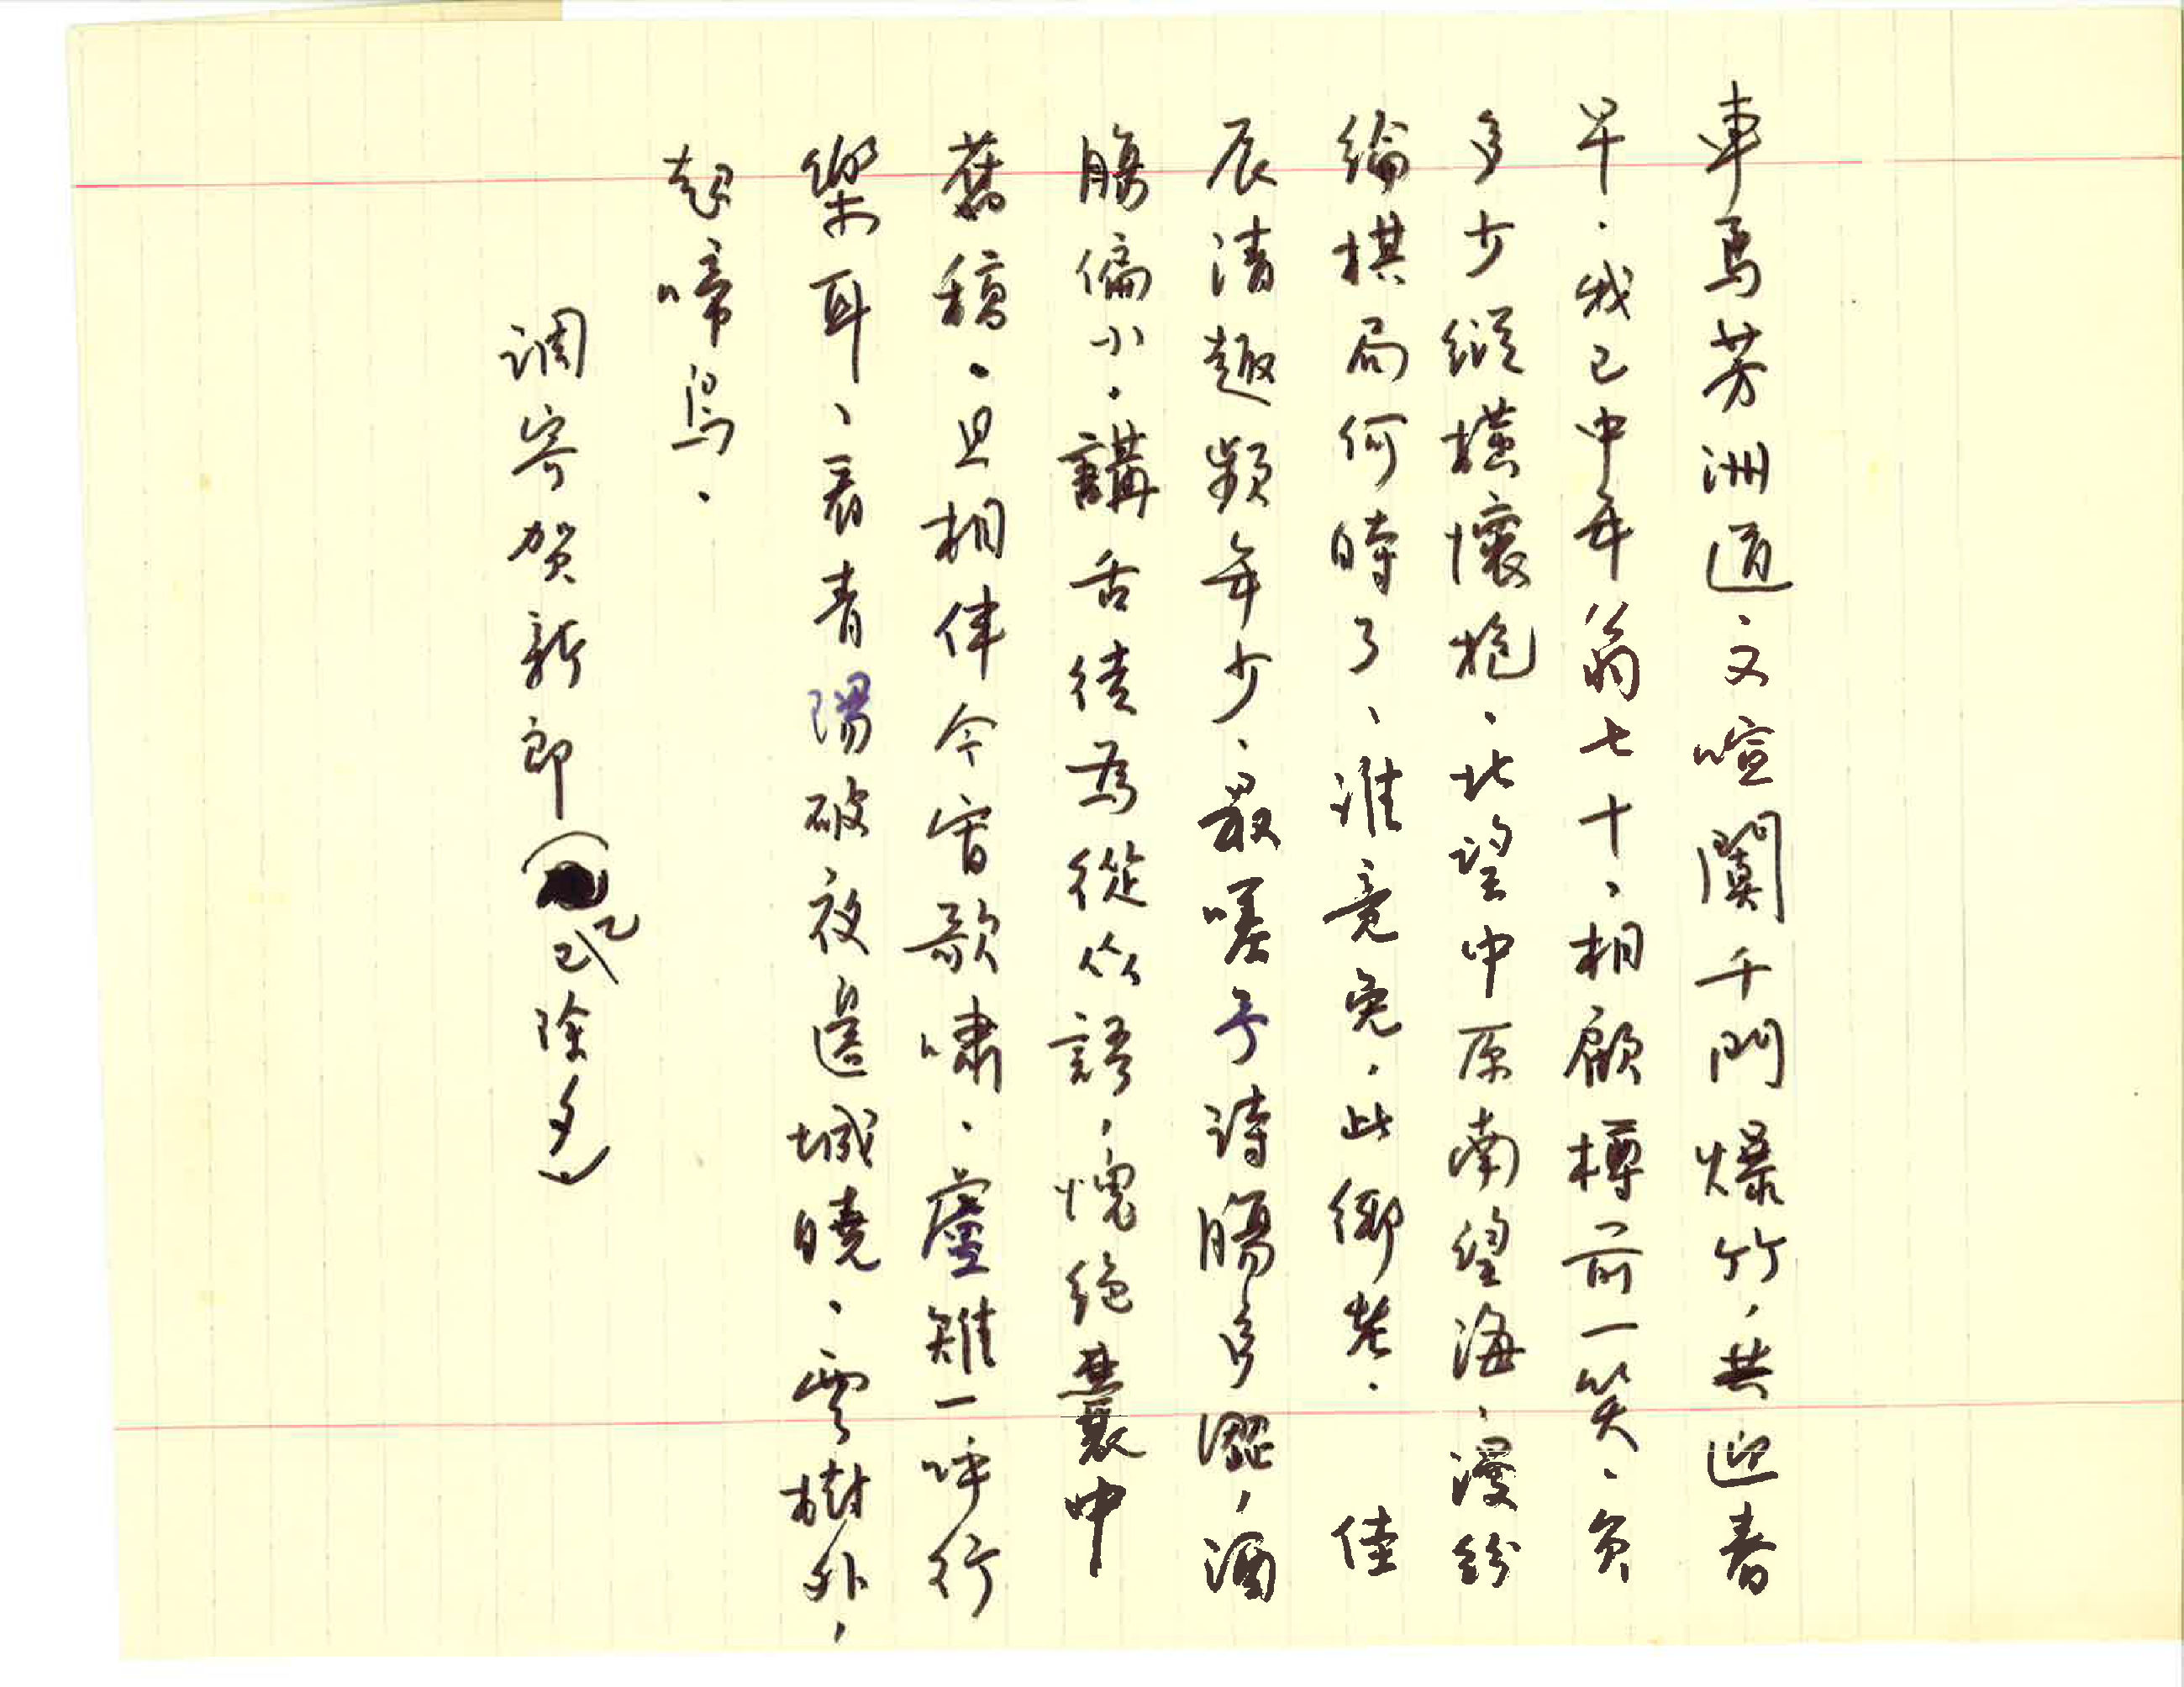 車馬芳洲道、又喧闐千門爆竹，共迎春
早．我已中年翁七十、相顧樽前一笑、負
多少縱橫懷抱．北望中原南望海、漫紛
綸棋局何時了、誰竟免．此鄉老．佳
辰清趣頻年少、最嗟予詩腸多澀，酒
腸偏小．講舌徒為從俗語，愧絕囊中
舊稿．且相伴今宵歌嘯．盧雉一呼行
樂耳、看青陽破夜邊城曉．雲樹外，
起啼鳥．
調寄賀新郎（乙巳除夕）